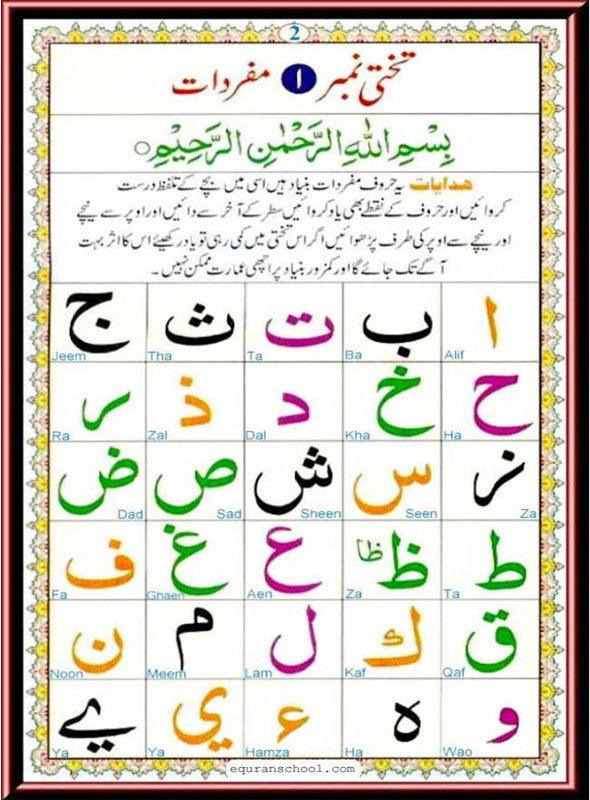 2
تختی نمبر ۱ مفردات
بِسْمِ اللهِ الرَّحْمٰنِ الرَّحِيْمِ ○
ھدایات یہ حروف مفردات بنیاد ہیں اسی میں بچے کے تلفظ درست
کروائیں اور حروف کے نقطے بھی یاد کروائیں سطر کے آخر سے دائیں اور اوپر سے نیچے
اور نیچے سے اوپر کی طرف پڑھوائیں اگر اس تختی میں کمی رہی تو یاد رکھیئے اس کا اثر بہت
آگے تک جائے گا اور کمزور بنیاد پر اچھی عمارت ممکن نہیں۔
ا ب ت ث ج
Alif Ba Ta Tha Jeem
ح خ د ذ ر
Ha Kha Dal Zal Ra
ز س ش ص ض
Za Seen Sheen Sad Dad
ط ظ ظا ع غ ف
Ta Za Aen Ghaen Fa
ق ك ل م ن
Qaf Kaf Lam Meem Noon
و ه ء ي ے
Wao Ha Hamza Ya Ya
equranschool.com